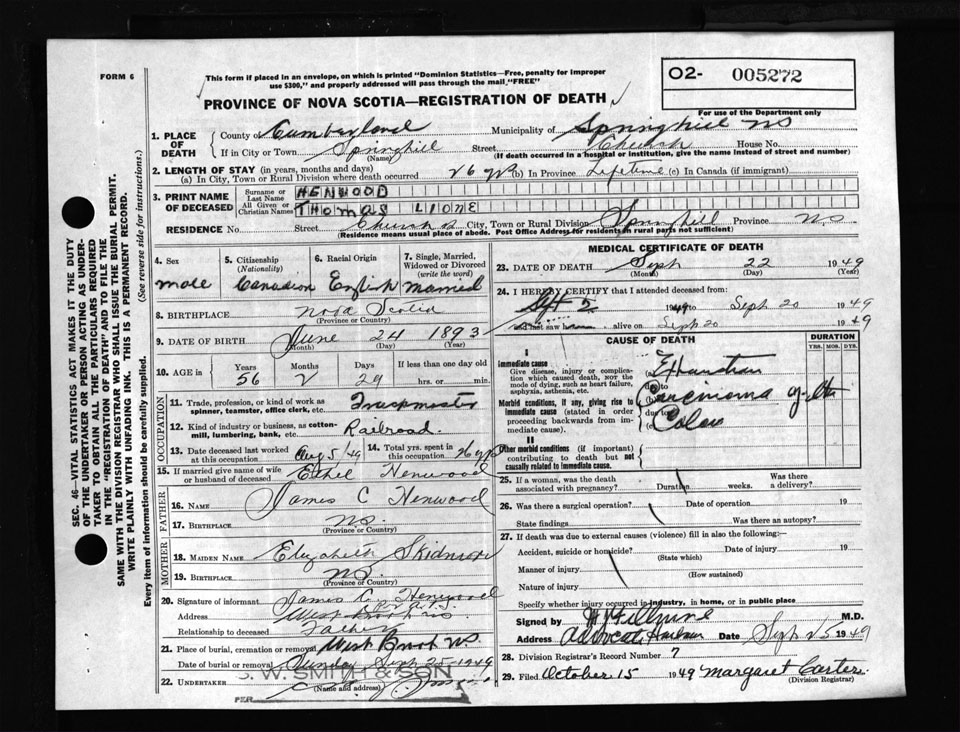 FORM 6
This form if placed in an envelope, on which is printed "Dominion Statistics—Free, penalty for improper
use $300," and properly addressed will pass through the mail "FREE"
O2- 005272
PROVINCE OF NOVA SCOTIA—REGISTRATION OF DEATH
For use of the Department only
1. PLACE OF DEATH County of Cumberland Municipality of Springhill NS
If in City or Town Springhill (Name) Street Church House No.
(If death occurred in a hospital or institution, give the name instead of street and number)
2. LENGTH OF STAY (in years, months and days)
(a) In City, Town or Rural Division where death occurred 26 yrs (b) In Province Lifetime (c) In Canada (if immigrant)
3. PRINT NAME OF DECEASED Surname or Last Name HENWOOD
All Given or Christian Names THOMAS LIONE
RESIDENCE No. Street Church St City, Town or Rural Division Springhill Province NS
(Residence means usual place of abode. Post Office Address for residents in rural parts not sufficient)
4. Sex male
5. Citizenship (Nationality) Canadian
6. Racial Origin English
7. Single, Married, Widowed or Divorced (write the word) married
8. BIRTHPLACE Nova Scotia
(Province or Country)
9. DATE OF BIRTH June 24 1893
(Month) (Day) (Year)
10. AGE in Years 56 Months 2 Days 29 If less than one day old hrs. or min.
OCCUPATION
11. Trade, profession, or kind of work as spinner, teamster, office clerk, etc. Trackmaster
12. Kind of industry or business, as cotton-mill, lumbering, bank, etc. Railroad
13. Date deceased last worked at this occupation Aug 5/49 14. Total yrs. spent in this occupation 26 yrs
15. If married give name of wife or husband of deceased Ethel Henwood
FATHER
16. NAME James C Henwood
17. BIRTHPLACE NS
(Province or Country)
MOTHER
18. MAIDEN NAME Elizabeth Skidmore
19. BIRTHPLACE NS.
(Province or Country)
20. Signature of informant James C. Henwood
Address West Brook
Relationship to deceased Father
21. Place of burial, cremation or removal West Brook NS.
Date of burial or removal Sunday Sept 25 1949
22. UNDERTAKER W. SMITH & SON
(Name and address)
PER
MEDICAL CERTIFICATE OF DEATH
23. DATE OF DEATH Sept 22 1949
(Month) (Day) (Year)
24. I HEREBY CERTIFY that I attended deceased from:
Sept 2 1949 Sept 20 1949
and last saw him alive on Sept 20 1949
CAUSE OF DEATH DURATION
YRS. MOS. DYS.
I
Immediate cause
Give disease, injury or complication which caused death, not the mode of dying, such as heart failure, asphyxia, asthenia, etc.
(a) Exhaustion
due to
Morbid conditions, if any, giving rise to immediate cause (stated in order proceeding backwards from immediate cause).
(b) Carcinoma of the
due to
(c) Colon
II
Other morbid conditions (if important) contributing to death but not causally related to immediate cause.
25. If a woman, was the death associated with pregnancy? Duration weeks. Was there a delivery?
26. Was there a surgical operation? Date of operation 19
State findings Was there an autopsy?
27. If death was due to external causes (violence) fill in also the following:
Accident, suicide or homicide? Date of injury 19
(State which)
Manner of injury
(How sustained)
Nature of injury
Specify whether injury occurred in industry, in home, or in public place
Signed by M.D.
Address Advocate Harbour Date Sept 25 1949
28. Division Registrar's Record Number 7
29. Filed October 15 1949 Margaret Carter
(Division Registrar)
SEC. 46—VITAL STATISTICS ACT MAKES IT THE DUTY
OF THE UNDERTAKER OR PERSON ACTING AS UNDER-
TAKER TO OBTAIN ALL THE PARTICULARS REQUIRED
IN THE "REGISTRATION OF DEATH" AND TO FILE THE
SAME WITH THE DIVISION REGISTRAR WHO SHALL ISSUE THE BURIAL PERMIT.
WRITE PLAINLY WITH UNFADING INK. THIS IS A PERMANENT RECORD.
Every item of information should be carefully supplied. (See reverse side for instructions.)